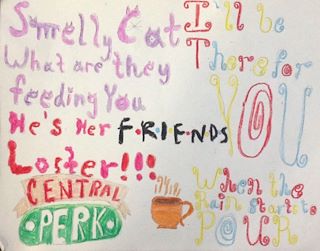 Smelly Cat
What are they
feeding you
He's Her
Loster!!!
F•R•I•E•N•D•S
CENTRAL
PERK
I'll be
There for
YOU
When the
Rain starts to
POUR